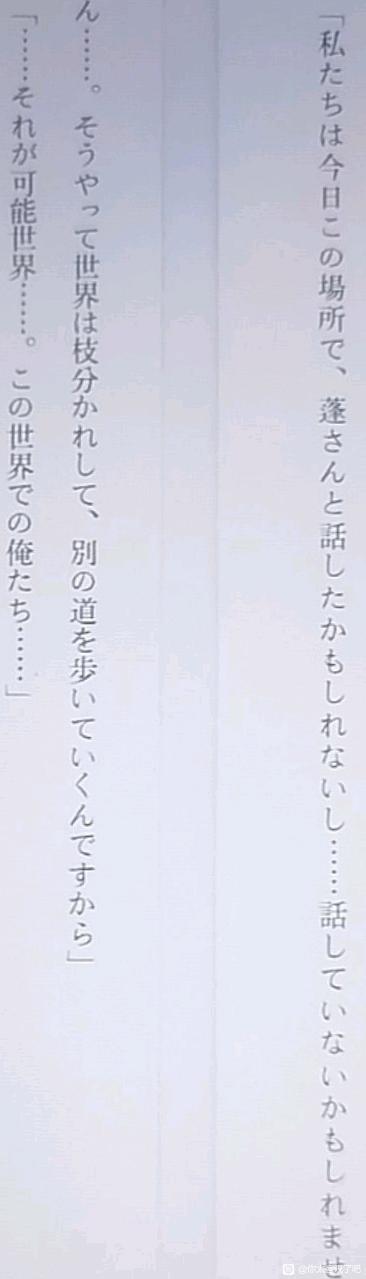 「私たちは今日この場所で、蓬さんと話したかもしれないし……話していないかもしれませ
ん……。そうやって世界は枝分かれして、別の道を歩いていくんですから」
「……それが可能世界……。この世界での俺たち……」